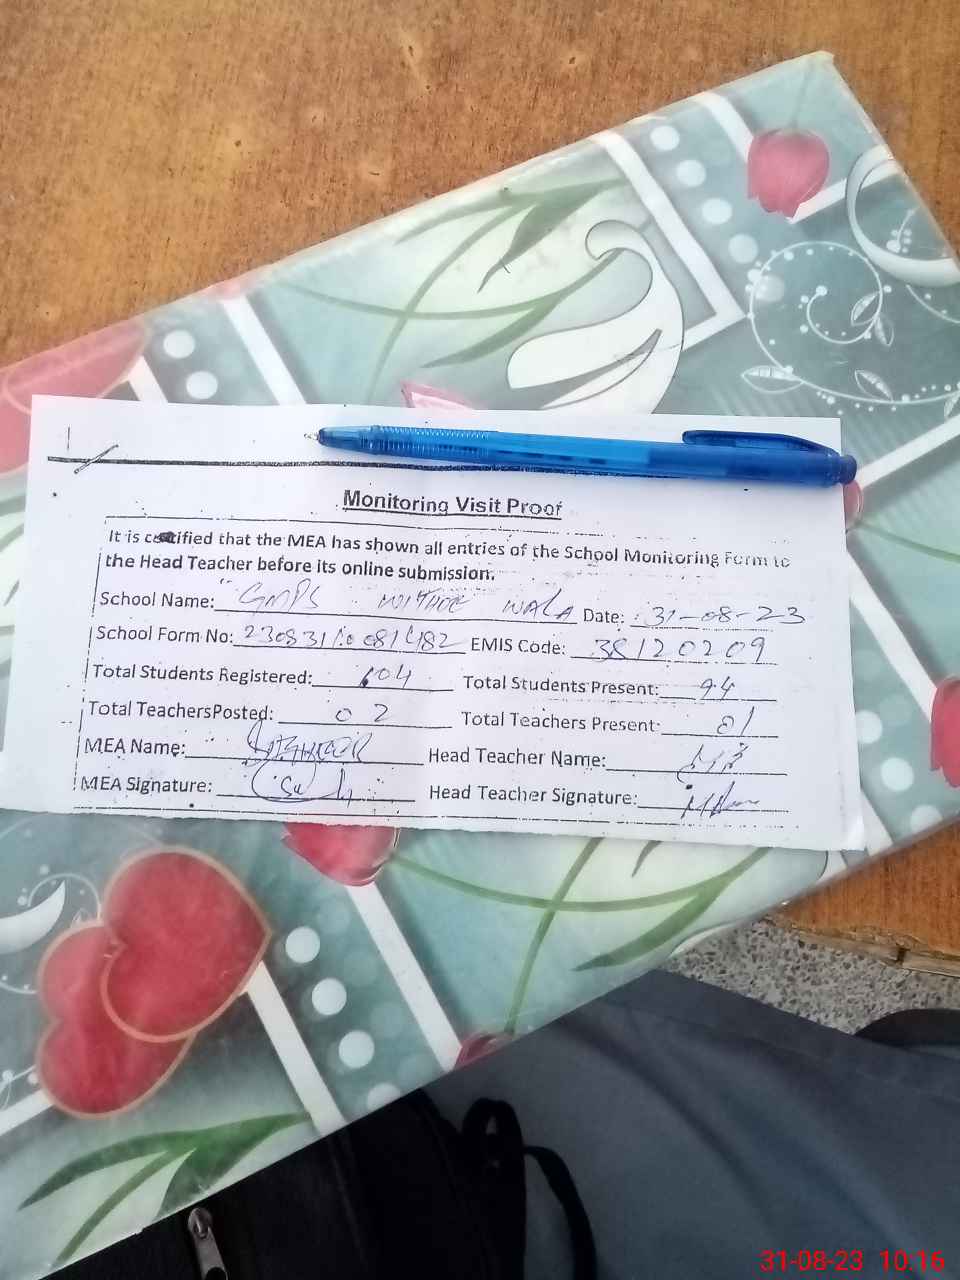 Monitoring Visit Proof
It is certified that the MEA has shown all entries of the School Monitoring Form to
the Head Teacher before its online submission.
School Name: GMPS WALA Date: 31-08-23
School Form No: EMIS Code: 38120209
Total Students Registered: 104 Total Students Present: 94
Total TeachersPosted: 02 Total Teachers Present: 01
MEA Name: Head Teacher Name:
MEA Signature: Head Teacher Signature:
31-08-23 10:16